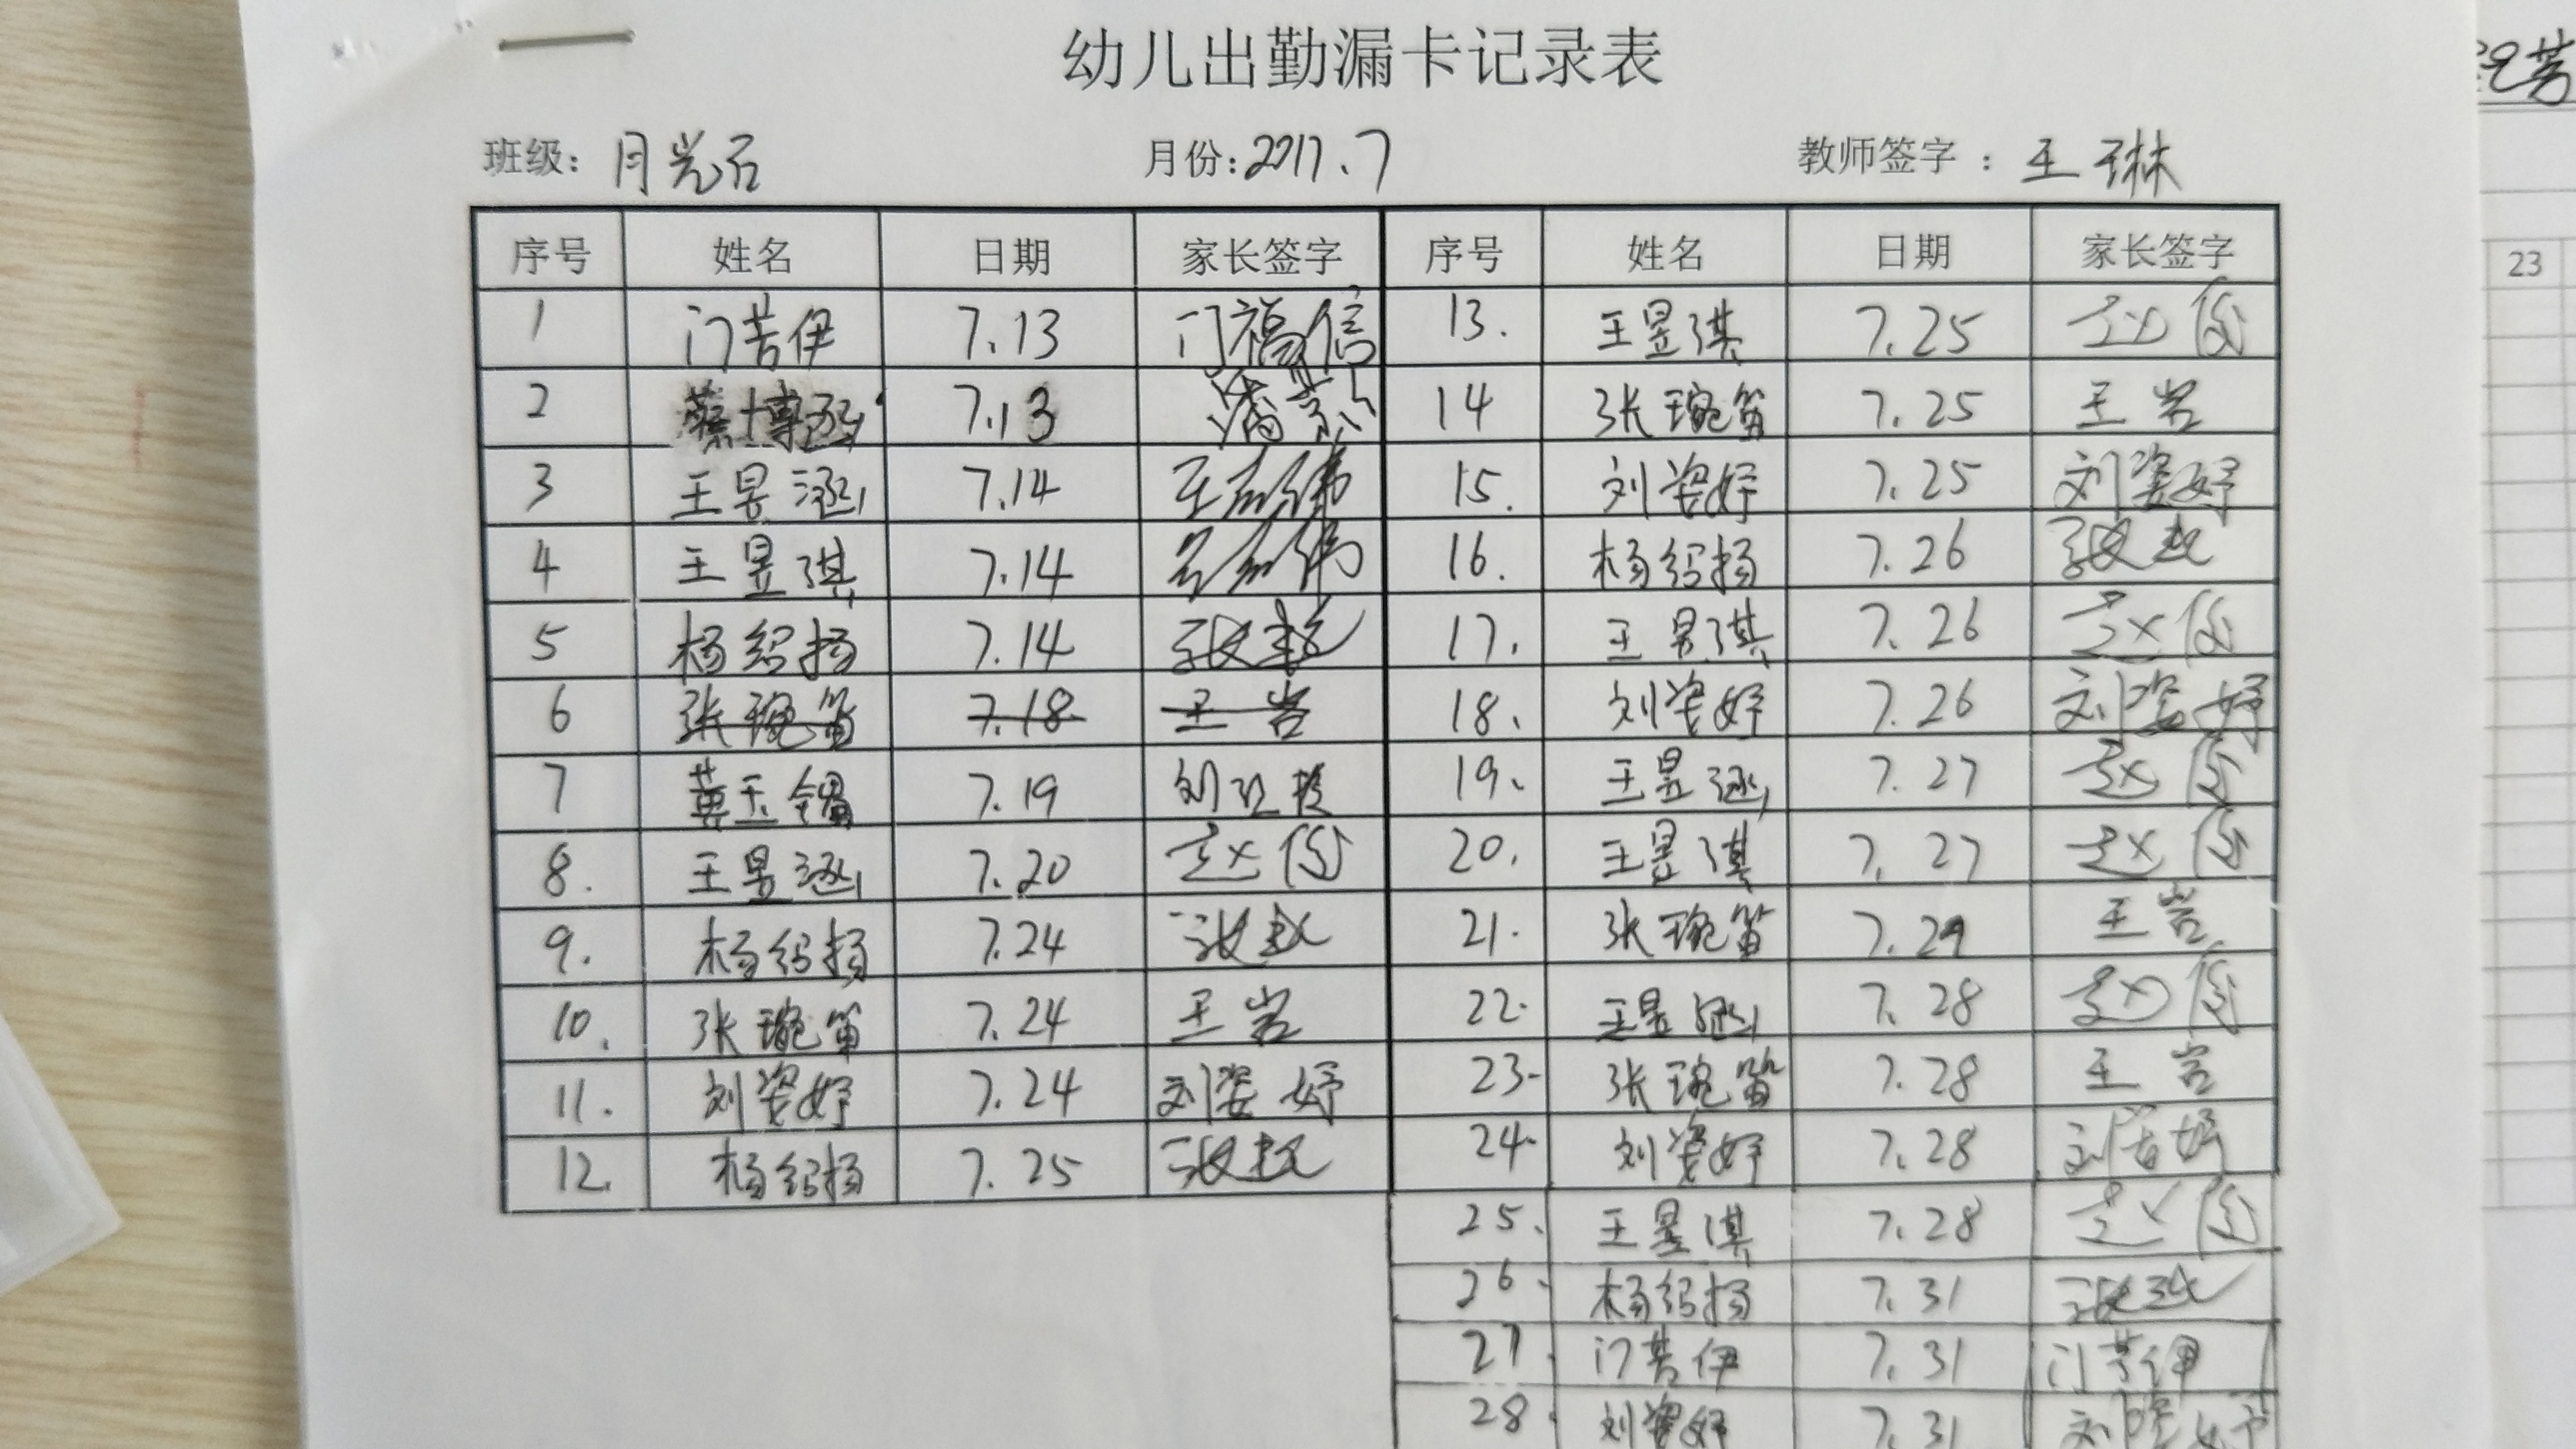 幼儿出勤漏卡记录表
班级: 月光石 月份: 2017.7 教师签字: 王琳
序号 姓名 日期 家长签字 序号 姓名 日期 家长签字
1 门芸伊 7.13 门福信 13. 王昱琪 7.25
2 蔡博涵 7.13 14 张琬笛 7.25 王岩
3 王昱涵 7.14 15. 刘姿妤 7.25 刘姿妤
4 王昱琪 7.14 16. 杨绍扬 7.26
5 杨绍扬 7.14 17. 王昱琪 7.26
6 张琬笛 7.18 王岩 18. 刘姿妤 7.26 刘姿妤
7 7.19 19. 王昱涵 7.27
8. 王昱涵 7.20 20. 王昱琪 7.27
9. 杨绍扬 7.24 21. 张琬笛 7.29 王岩
10. 张琬笛 7.24 王岩 22. 王昱涵 7.28
11. 刘姿妤 7.24 刘姿妤 23. 张琬笛 7.28 王岩
12. 杨绍扬 7.25 24. 刘姿妤 7.28 刘姿妤
25. 王昱琪 7.28
26. 杨绍扬 7.31
27. 门芸伊 7.31 门芸伊
28. 刘姿妤 7.31 刘姿妤
芳
23